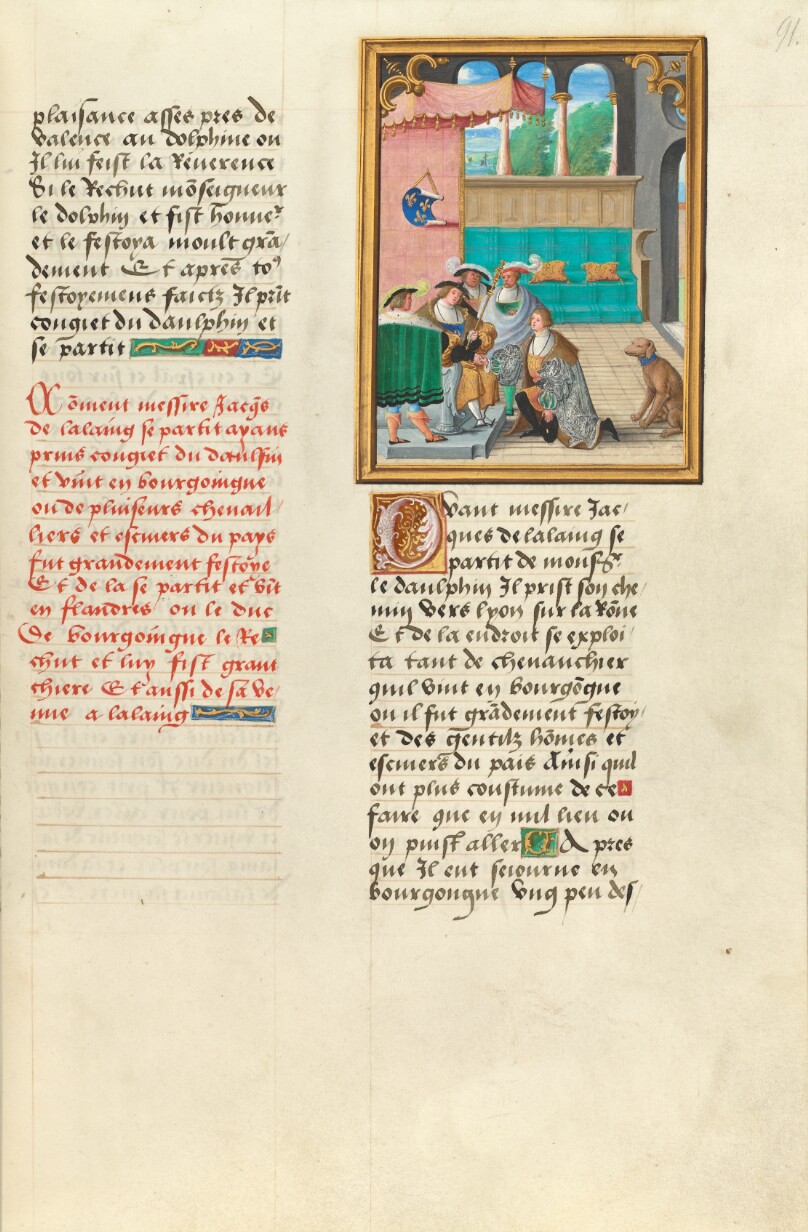 91.
plaisance asses pres de
valence au dolphine ou
Il lui feist la Reverence
Si le Rechut mōseigneur
le dolphin et fist honneʳ
et le festoya moult grā/
dement Et apres toˀ
festoyemens faictz Il prīt
congiet du daulphin et
se partit
Cōment messire Jacq̄s
de lalaing se partit ayans
prins congiet du daulfin
et vint en bourgoingne
ou de pluiseurs chevail/
liers et escuiers du pays
fut grandement festoye
Et de la se partit et vīt
en flandres ou le duc
De bourgoingne le Re
chut et luy fist grant
chiere Et aussi de sa ve/
nue a lalaing
Quant messire Jac/
ques de lalaing se
partit de monsgʳ
le daulphin Il prist son che/
min vers lyon sur la Rōne
Et de la endroit se exploi/
ta tant de chevauchier
quil vint en bourgōgne
ou il fut grādement festoy/
et des gentilz hōmes et
escuiers du pais Ainsi quil
ont plus coustume de ce
faire que en nul lieu ou
on puist aller Apres
que Il eut seiourne en
bourgongne vng peu des/